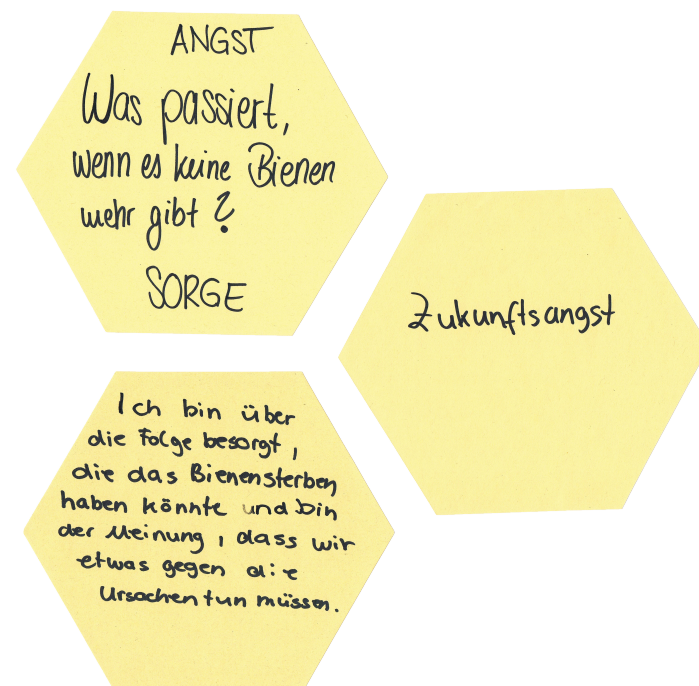 ANGST
Was passiert,
wenn es keine Bienen
mehr gibt?
SORGE
Zukunftsangst
Ich bin über
die Folge besorgt,
die das Bienensterben
haben könnte und bin
der Meinung, dass wir
etwas gegen die
Ursachen tun müssen.